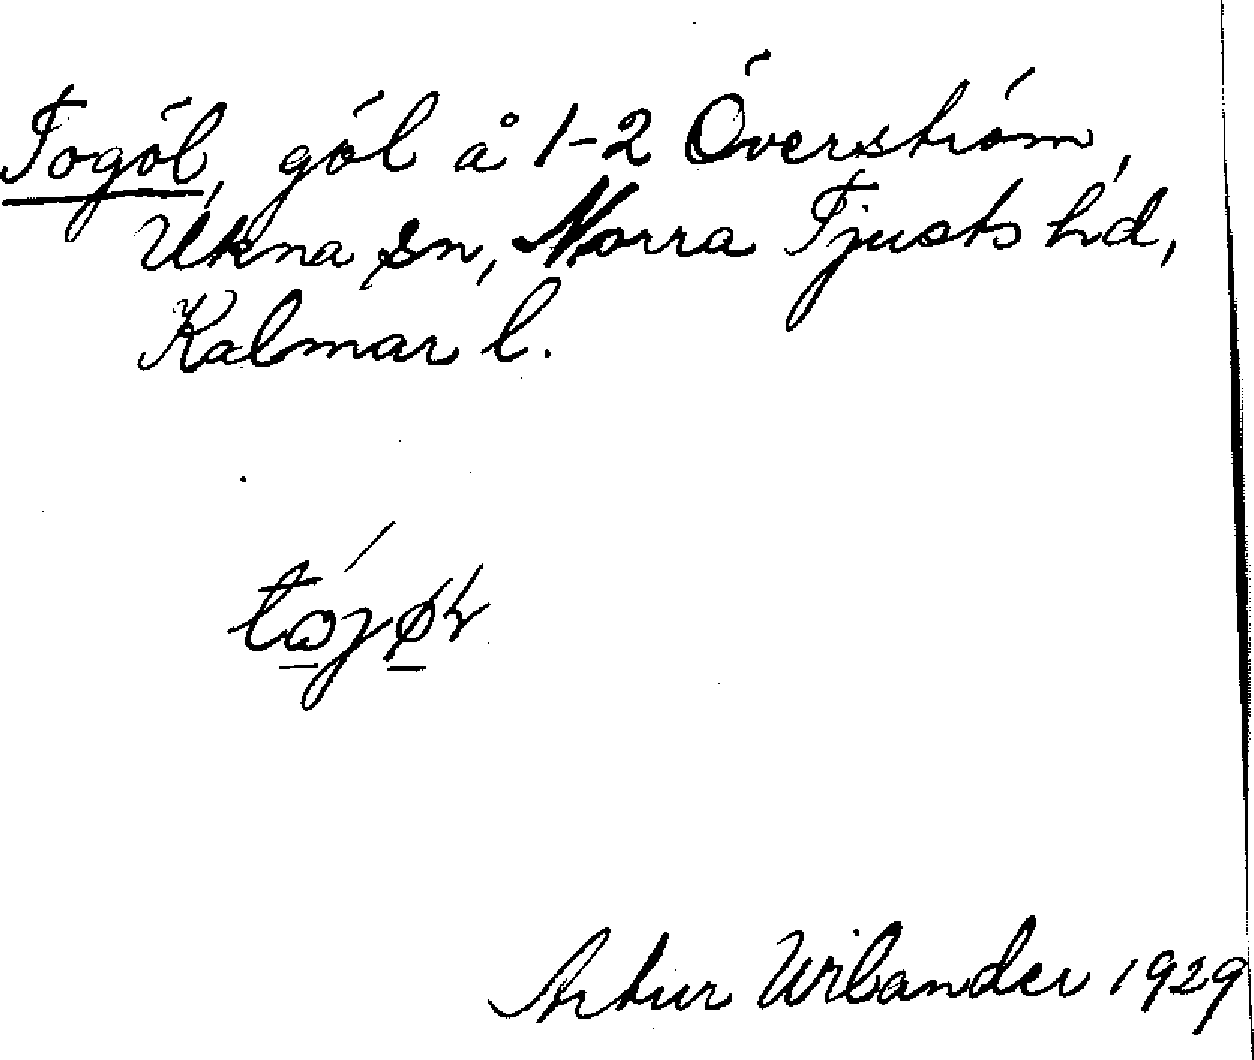 Togöl, göl å 1-2 Överström,
Ukna sn, Norra Tjusts hd,
Kalmar l.
Artur Wilander 1929